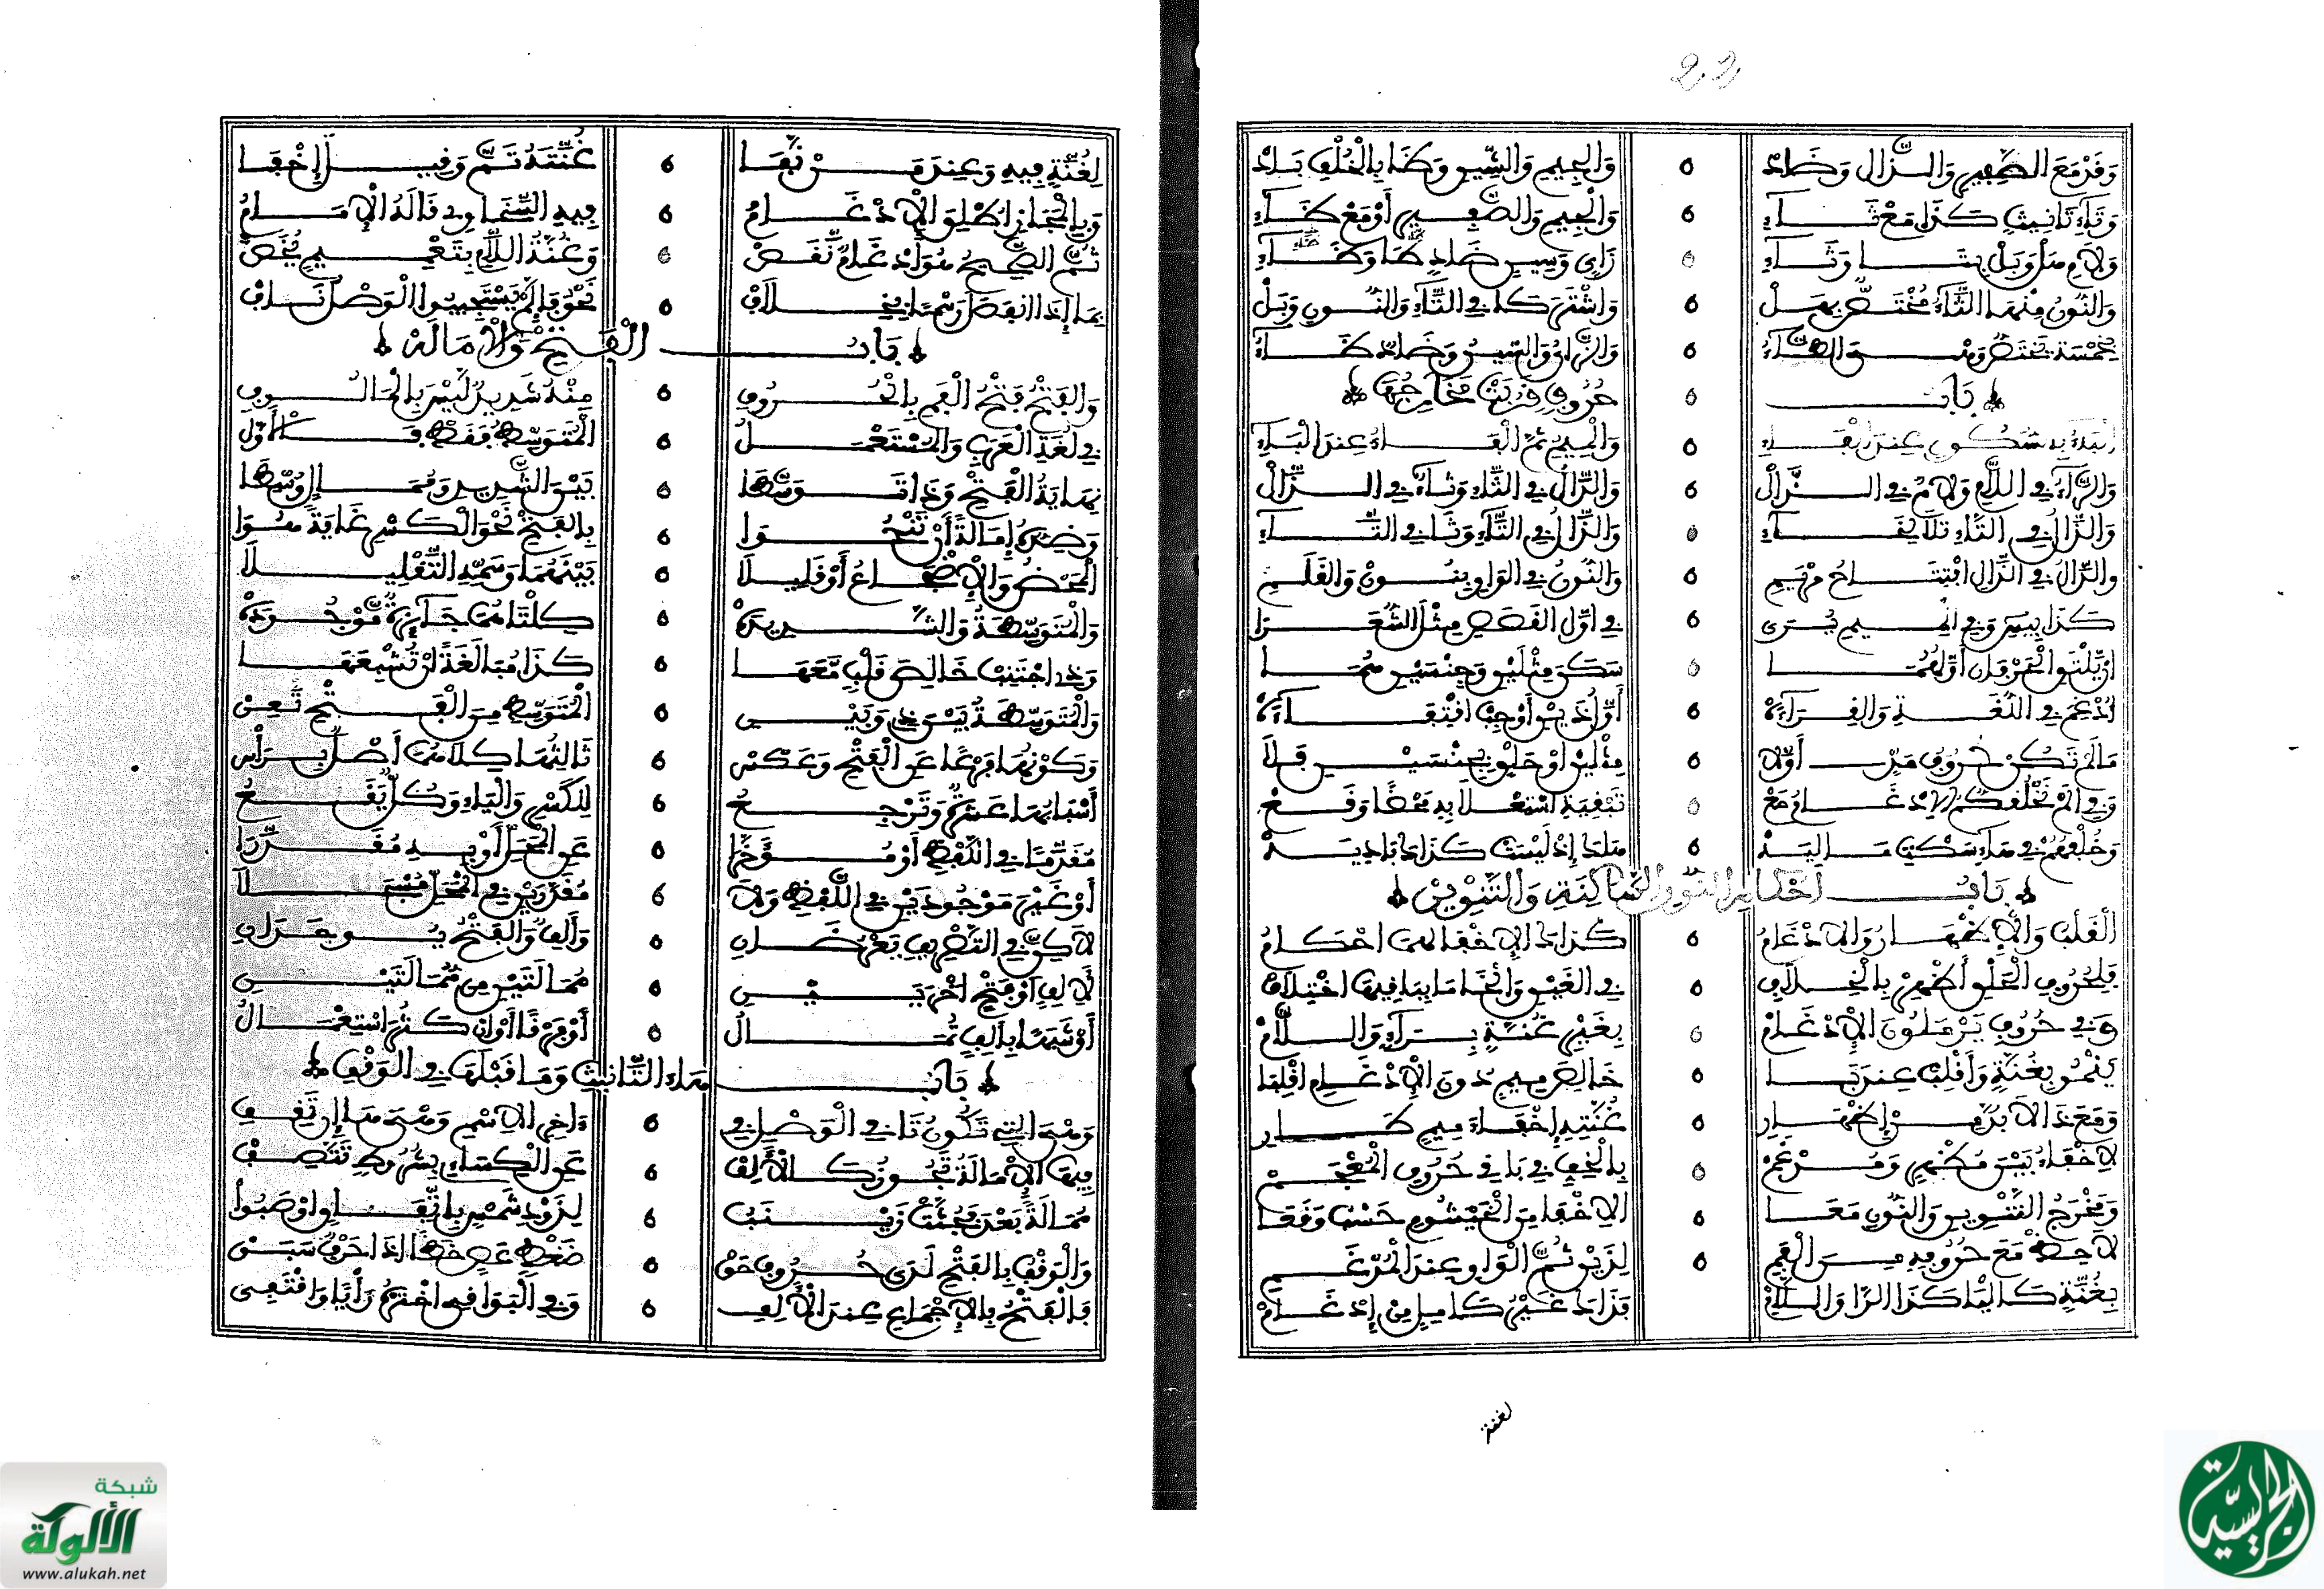 وَقَدْ مَعَ الصَّفِيرِ وَالذَّالِ وَضَادْ ٥ وَالْجِيمِ وَالشِّينِ وَكَذَا بِالْخُلْفِ بَادْ
وَتَاءُ تَانِيثٍ كَذَا مَعْ ثَاءِ ٥ وَالْجِيمِ وَالصَّفِيرِ أَوْ مَعْ ظَاءِ
وَلَامِ هَلْ وَبَلْ بِتَا وَثَاءِ ٥ زَايٍ وَسِينٍ ضَادٍ طَا وَظَاءِ
وَالنُّونِ مِنْهَا الثَّاءُ مُخْتَصٌّ بِهَلْ ٥ وَاشْتَرَكَا فِي التَّاءِ وَالنُّونِ وَبَلْ
بِخَمْسَةٍ يَخْتَصُّ وَالطَّاءُ ٥ وَالزَّايُ وَالسِّينُ وَضَادٌ ظَاءُ
بَابُ ٥ حُرُوفٍ قَرُبَتْ مَخَارِجُهَا
عِنْدَ الْفَاءِ ٥ وَالْمِيمُ ثُمَّ الْفَاءُ عِنْدَ الْبَاءِ
وَالرَّاءُ فِي اللَّامِ وَلَامٌ فِي الذَّالْ ٥ وَالدَّالُ فِي الثَّاءِ وَثَاءٌ فِي الذَّالْ
وَالذَّالُ فِي التَّاءِ ٥ وَالذَّالُ فِي التَّاءِ وَثَا فِي التَّاءِ
وَالدَّالُ فِي الذَّالِ افْتِتَاحُ مَرْيَمِ ٥ وَالنُّونُ فِي الْوَاوِ بِنُونَ وَالْقَلَمِ
كَذَا بِيسَ وَفِي الْمِيمِ يُرَى ٥ فِي أَوَّلِ الْقَصَصِ مِثْلَ الشُّعَرَا
إِنْ يَلْتَقِ الْحَرْفَانِ أَوَّلُهُمَا ٥ سَكَنَ مِثْلَيْنِ وَجِنْسَيْنِ هُمَا
أَدْغِمْ فِي اللُّغَةِ وَالْقِرَاءَةْ ٥
مَا لَمْ تَكُنْ حُرُوفَ مَدٍّ أَوَّلَا ٥ مِثْلَيْنِ أَوْ حَلْقٍ بِجِنْسَيْنِ فَلَا
وَفِي أَلَمْ نَخْلُقكُّمُ الْإِدْغَامُ مَعْ ٥ تَبْقِيَةِ اسْتِعْلَا بِهِ
وَخُلْفُهُمْ فِي هَاءِ سَكْتِ مَالِيَهْ ٥
بَابُ أَحْكَامِ النُّونِ السَّاكِنَةِ وَالتَّنْوِينْ
الْقَلْبُ وَالْإِظْهَارُ وَالْإِدْغَامُ ٥ كَذَلِكَ الْإِخْفَا لَهَا أَحْكَامُ
فَلِحُرُوفِ الْحَلْقِ أَظْهِرْ بِالْخِلَافِ ٥ فِي الْغَيْنِ وَالْخَا مَا بِهَا فِيهَا اخْتِلَافْ
وَفِي حُرُوفِ يَرْمَلُونَ الْإِدْغَامْ ٥ بِغَيْرِ غُنَّةٍ بِرَاءٍ وَاللَّامْ
يَنْمُو بِغُنَّةٍ وَأَقْلِبْ عِنْدَ بَا ٥ خَالِصَ مِيمٍ دُونَ الْإِدْغَامِ اقْلِبَا
وَمَعَ ذَا لَابُدَّ مِنْ إِظْهَارِ ٥ غُنَّتِهِ إِخْفَاءَ مِيمٍ
لِاخْفَاءُ بَيْنَ مُظْهَرٍ وَمُدْغَمْ ٥ بِالْخُلْفِ فِي بَاقِي حُرُوفِ الْمُعْجَمْ
وَمَخْرَجُ التَّنْوِينِ وَالنُّونِ مَعَا ٥ الِاخْفَا مِنَ الْخَيْشُومِ حَسْبُ وَقَعَا
لَا حَظَّ مَعْ حُرُوفِهِ مِنَ الْفَمِ ٥ لِذَيْنِ ثُمَّ الْوَاوُ عِنْدَ الْمُدْغَمِ
بِغُنَّةٍ كَالْيَا كَذَا الرَّا وَاللَّامْ ٥ فَذَاكَ غَيْرُ كَامِلٍ مِنْ إِدْغَامْ
لغنة
لِغُنَّةٍ فِيهِ وَعِنْدَ مَنْ نَفَا ٥ غُنَّتَهُ تَمَّ وَقِيلَ إِخْفَا
وَبِالْمَجَازِ أُطْلِقَ الْإِدْغَامُ ٥ فِيهِ السَّخَاوِي قَالَهُ الْإِمَامُ
ثُمَّ الصَّحِيحُ هُوَ إِدْغَامٌ نَقَصْ ٥ وَغُنَّةُ اللَّامِ بِتَعْمِيمٍ يُخَصْ
بِمَا إِذَا انْفَصَلَ رَسْمًا بِخِلَافْ ٥ نَحْوُ فَإِلَّمْ يَسْتَجِيبُوا الْوَصْلُ نَافْ
بَابُ الْفَتْحِ وَالْإِمَالَهْ
وَالْفَتْحُ فَتْحُ الْفَمِ بِالْحُرُوفِ ٥ مِنْهُ شَدِيدٌ لَيْسَ بِالْمَالُوفِ
فِي لُغَةِ الْعَرَبِ وَالْمُسْتَعْمَلُ ٥ الْمُتَوَسِّطُ فَقَطْ فَالْأَوَّلُ
نِهَايَةُ الْفَتْحِ وَذَا تَوَسَّطَا ٥ بَيْنَ الشَّدِيدِ وَمُمَالٍ وُسِّطَا
وَضِدُّهُ إِمَالَةٌ أَنْ تَنْحُوَا ٥ بِالْفَتْحِ نَحْوَ الْكَسْرِ غَايَةً هُوَا
الْمَحْضُ وَالْإِضْجَاعُ أَوْ قَلِيلَا ٥ بَيْنَهُمَا وَسَمِّهِ التَّقْلِيلَا
وَالْمُتَوَسِّطَةُ وَالشَّدِيدَهْ ٥ كِلْتَاهُمَا جَائِزَةٌ مَوْجُودَهْ
وَذِي اجْتَنِبْ خَالِصَ قَلْبٍ مَعَهَا ٥ كَذَا مُبَالَغَةً أَنْ تُشْبِعَهَا
وَالْمُتَوَسِّطَةُ بَيْنَ ذِي وَبَيْنِ ٥ الْمُتَوَسِّطِ مِنَ الْفَتْحِ تَعِنْ
وَكَوْنُهَا فَرْعًا عَنِ الْفَتْحِ وَعَكْسِ ٥ ثَالِثُهَا كِلَاهُمَا أَصْلٌ بِرَأْسِ
أَسْبَابُهَا عَشَرَةٌ وَتَرْجِعُ ٥ لِلْكَسْرِ وَالْيَاءِ وَكُلٌّ يَقَعُ
مُقَدَّمًا فِي اللَّفْظِ أَوْ مُؤَخَّرَا ٥ عَنِ الْمَحَلِّ أَوْ بِهِ مُقَدَّرَا
أَوْ غَيْرَ مَوْجُودَيْنِ فِي اللَّفْظِ وَلَا ٥ مُقَدَّرَيْنِ فِي الْمَحَلِّ مُسْجَلَا
لَاكِنْ فِي التَّصْرِيفِ يَعْرِضَانِ ٥ وَأَلِفٌ وَالْفَتْحُ يُوجَدَانِ
لِأَلِفٍ أَوْ فَتْحِ أُخْرَيَيْنِ ٥ مُمَالَتَيْنِ مِنْ مُمَالَتَيْنِ
أَوْ شَبَهًا بِأَلِفٍ تُمَالُ ٥ أَوْ فَرْقًا أَوْ أَنْ كَثُرَ اسْتِعْمَالُ
بَابُ هَاءِ التَّانِيثِ وَمَا قَبْلَهَا فِي الْوَقْفِ
وَهْيَ الَّتِي تَكُونُ تَا فِي الْوَصْلِ فِي ٥ ءَاخِرِ الِاسْمِ وَهْيَ هَا إِنْ تَقِفِ
فِيهَا الْإِمَالَةُ تَجُوزُ كَالْأَلِفْ ٥ عَنِ الْكِسَائِي بِشُرُوطٍ تَتَّصِفْ
مُمَالَةً بَعْدَ فَجَثَتْ زَيْنَبُ ٥ لِذَوْدِ شَمْسٍ بِاتِّفَاقٍ أَوْصَبُوا
وَالْوَقْفُ بِالْفَتْحِ لَدَى حُرُوفِ حَقْ ٥ ضَغْطٍ عَصٍ خَظَا إِذَا حَرْفٌ سَبَقْ
بِالْفَتْحِ بِالْإِجْمَاعِ عِنْدَ الْأَلِفِ ٥ وَفِي الْبَوَاقِي
شبكة
الألوكة
www.alukah.net